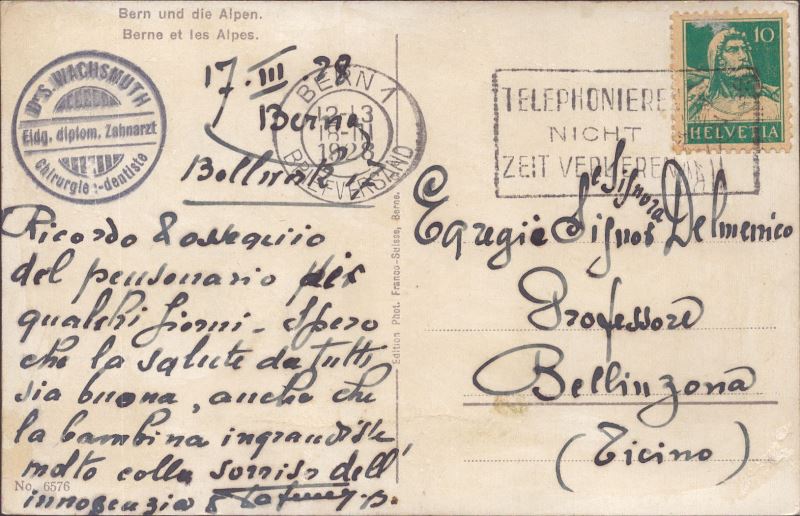 Bern und die Alpen.
Berne et les Alpes.
Dr S. WACHSMUTH
Eidg. diplom. Zahnarzt
Chirurgien-dentiste
17. III. 28
Berna
BERN 1
1928
BRIEFVERSAND
TELEPHONIEREN
NICHT
ZEIT VERLIEREN
10
HELVETIA
Ricordo
del pensonario per
qualchi giorni - Spero
che la salute da tutti
sia buona, anche che
la bambina ingrandisse
molto colla sorriso dell'
innogenzia
e Signora
Egregio Signor Delmenico
Professore
Bellinzona
(Ticino)
Edition Phot. Franco-Suisse, Berne.
No. 6576